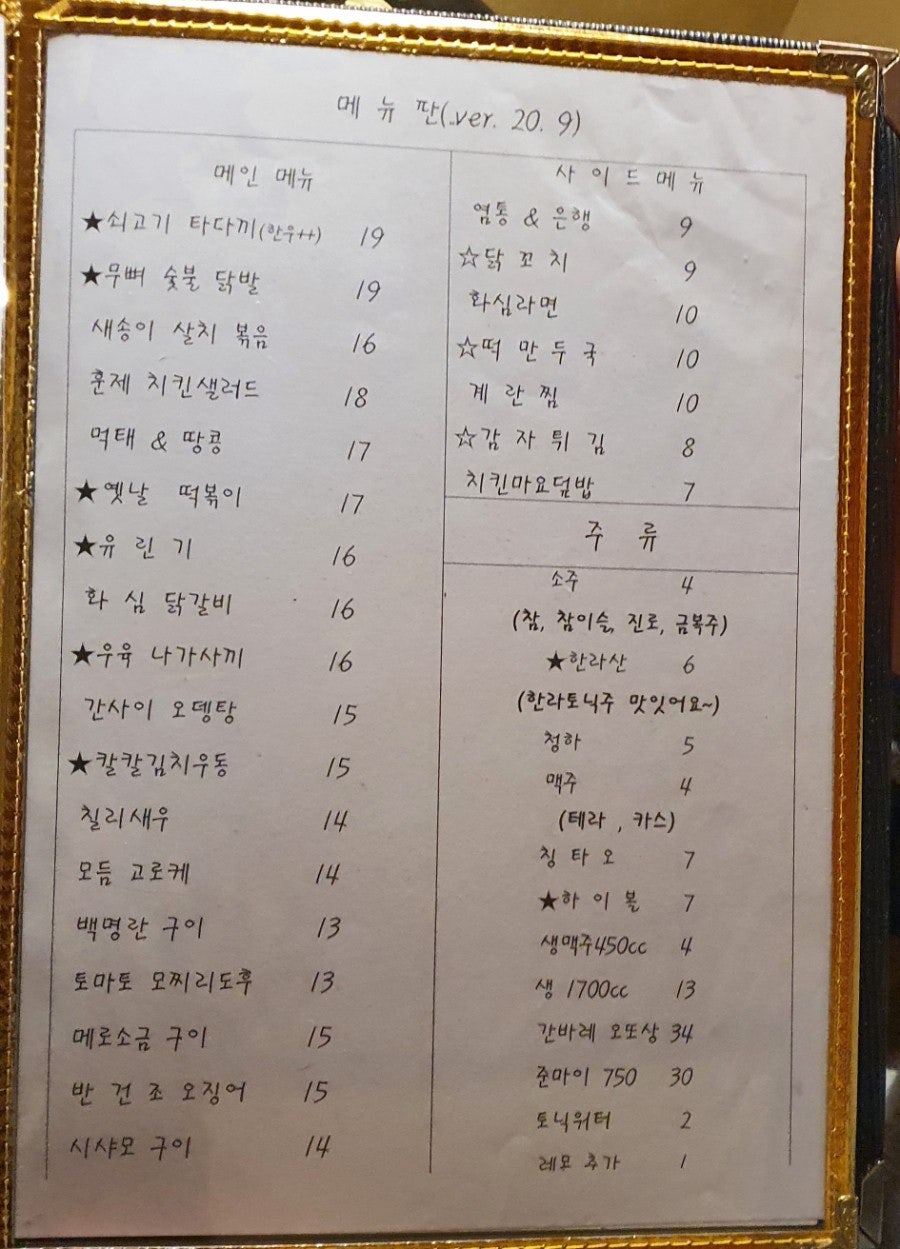 메 뉴 판(.ver. 20. 9)
메인 메뉴
★쇠고기 타다끼(한우++) 19
★무뼈 숯불 닭발 19
새송이 살치 볶음 16
훈제 치킨샐러드 18
먹태 & 땅콩 17
★옛날 떡볶이 17
★유 린 기 16
화 심 닭갈비 16
★우육 나가사끼 16
간사이 오뎅탕 15
★칼칼김치우동 15
칠리새우 14
모듬 고로케 14
백명란 구이 13
토마토 모찌리도후 13
메로소금 구이 15
반 건 조 오징어 15
시샤모 구이 14
사 이 드 메 뉴
염통 & 은행 9
☆닭 꼬 치 9
화심라면 10
☆떡 만 두 국 10
계 란 찜 10
☆감 자 튀 김 8
치킨마요덮밥 7
주 류
소주 4
(참, 참이슬, 진로, 금복주)
★한라산 6
(한라토닉주 맛있어요~)
청하 5
맥주 4
(테라 , 카스)
칭 타 오 7
★하 이 볼 7
생맥주450cc 4
생 1700cc 13
간바레 오또상 34
준마이 750 30
토닉워터 2
레몬 추가 1